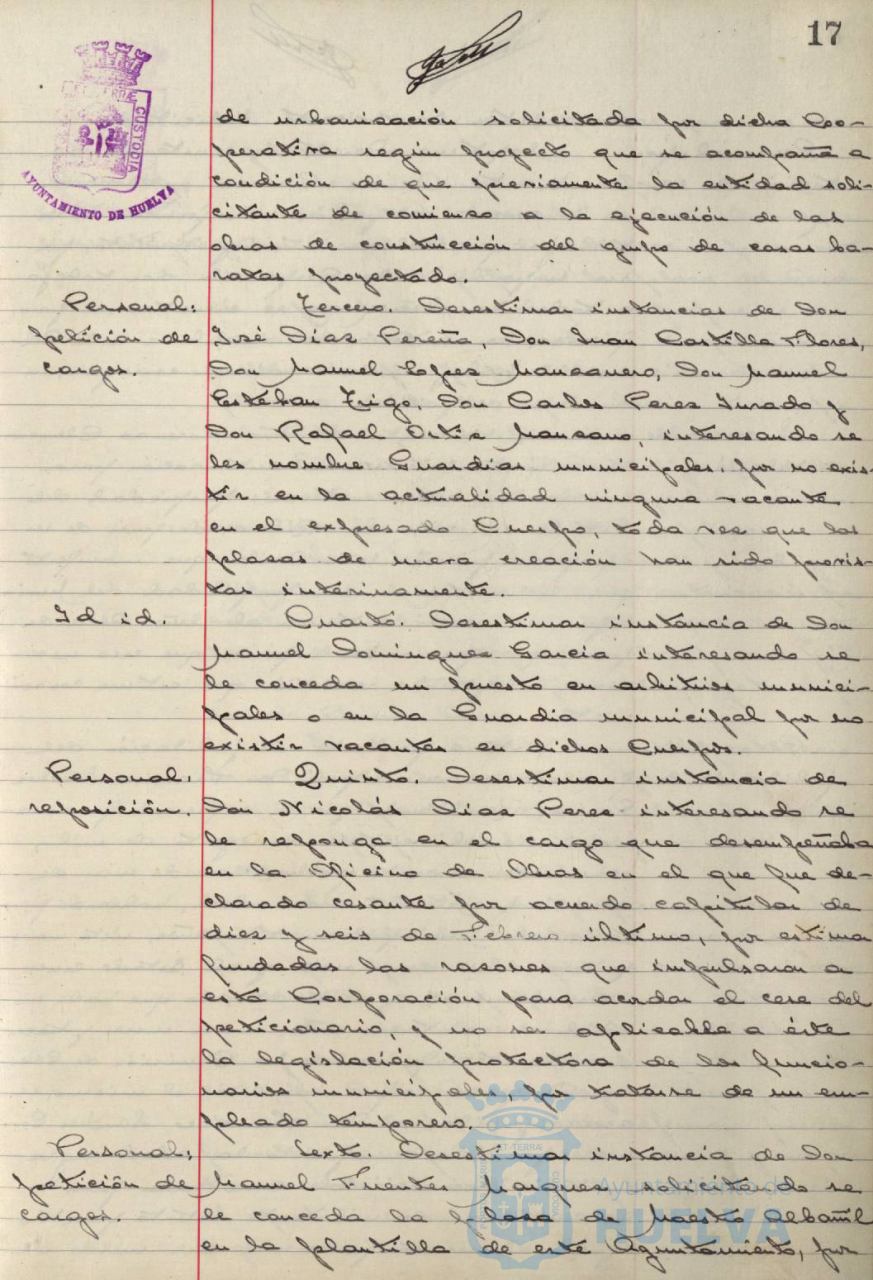 17
CUSTODIA
AYUNTAMIENTO DE HUELVA
de urbanización solicitada por dicha Coo-
perativa según proyecto que se acompaña a
condición de que previamente la entidad soli-
citante de comienzo a la ejecución de las
obras de construcción del grupo de casas ba-
ratas proyectado.
Personal: Tercero. Desestimar instancias de Don
petición de José Díaz Pereña, Don Juan Castilla Flores,
cargos. Don Manuel López Manzanero, Don Manuel
Esteban Trigo, Don Carlos Perez Jurado y
Don Rafael Ortiz Manzano, interesando se
les nombre Guardias municipales, por no exis-
tir en la actualidad ninguna vacante
en el expresado Cuerpo, toda vez que las
plazas de nueva creación han sido provis-
tas interinamente.
Id id. Cuarto. Desestimar instancia de Don
Manuel Dominguez Garcia interesando se
le conceda un puesto en arbitrios munici-
pales o en la Guardia municipal por no
existir vacantes en dichos Cuerpos.
Personal, Quinto. Desestimar instancia de
reposición. Don Nicolás Diaz Perez interesando se
le reponga en el cargo que desempeñaba
en la Oficina de Obras en el que fue de-
clarado cesante por acuerdo capitular de
diez y seis de Febrero último, por estimar
fundadas las razones que impulsaron a
esta Corporación para acordar el cese del
peticionario, y no ser aplicable a éste
la legislación protectora de los funcio-
narios municipales, por tratarse de un em-
pleado temporero.
Personal; Sexto. Desestimar instancia de Don
petición de Manuel Fuentes Marquez solicitando se
cargos. le conceda la plaza de Maestro Albañil
en la plantilla de este Ayuntamiento, por
Ayuntamiento de
HUELVA